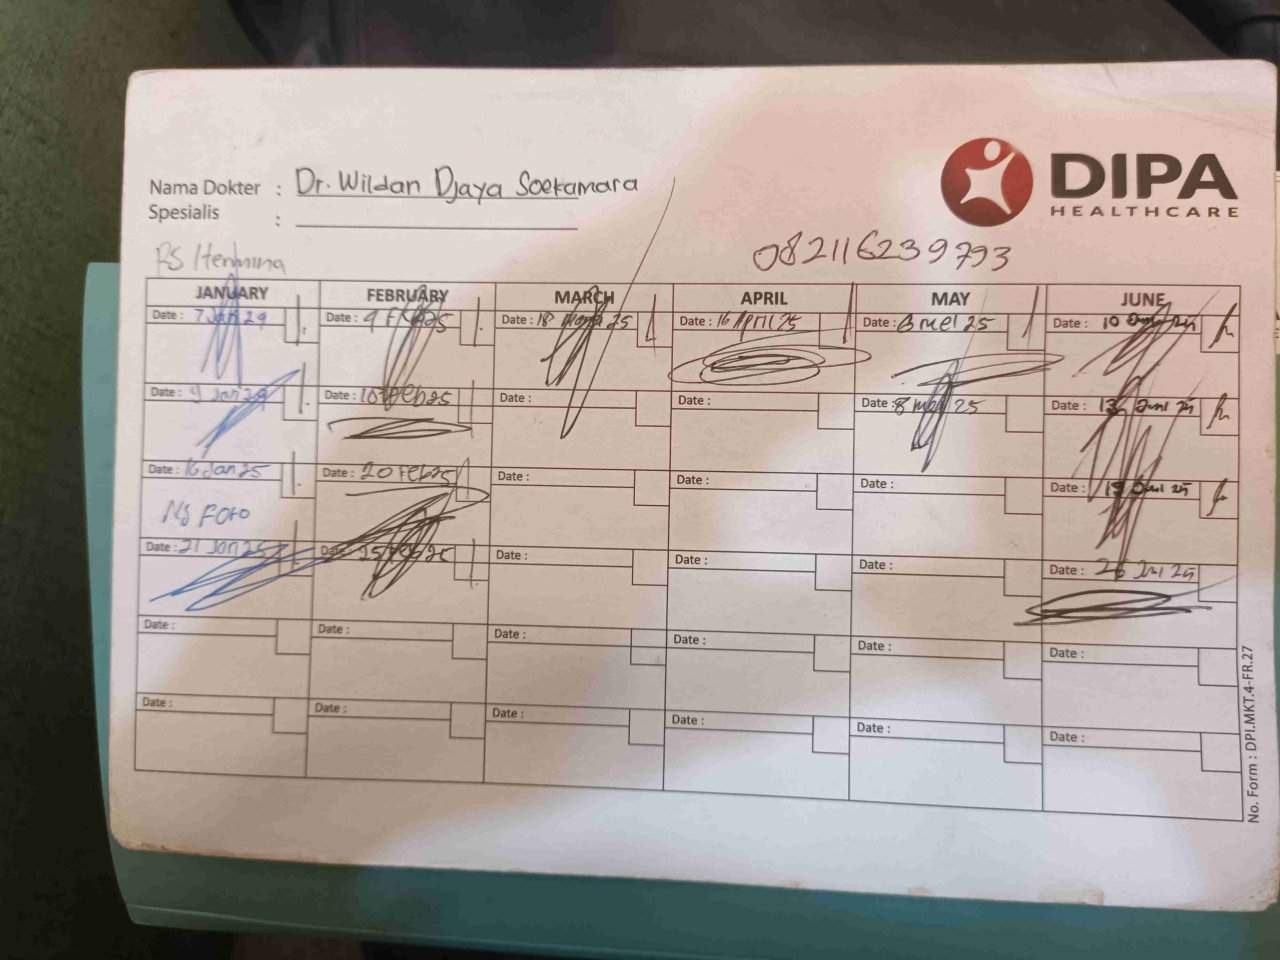 DIPA
HEALTHCARE
Nama Dokter : Dr. Wildan Djaya Soekamara
Spesialis :
RS Hermina
082116239793
JANUARY FEBRUARY MARCH APRIL MAY JUNE
Date : 7 Jan 29 Date : 9 Feb 25 Date : 18 25 Date : 16 April 25 Date : 6 mei 25 Date : 10
Date : 9 Jan Date : 10 Feb 25 Date : Date : Date : 8 mei 25 Date : 13 Juni 25
Date : 16 Jan 25 Date : 20 Feb 25 Date : Date : Date : Date : 19 Juni 25
Ns Foto
Date : 21 Jan 25 Date : 25 Feb 25 Date : Date : Date : Date : 26 Juni 25
Date : Date : Date : Date : Date : Date :
Date : Date : Date : Date : Date : Date :
No. Form : DPI.MKT.4-FR.27